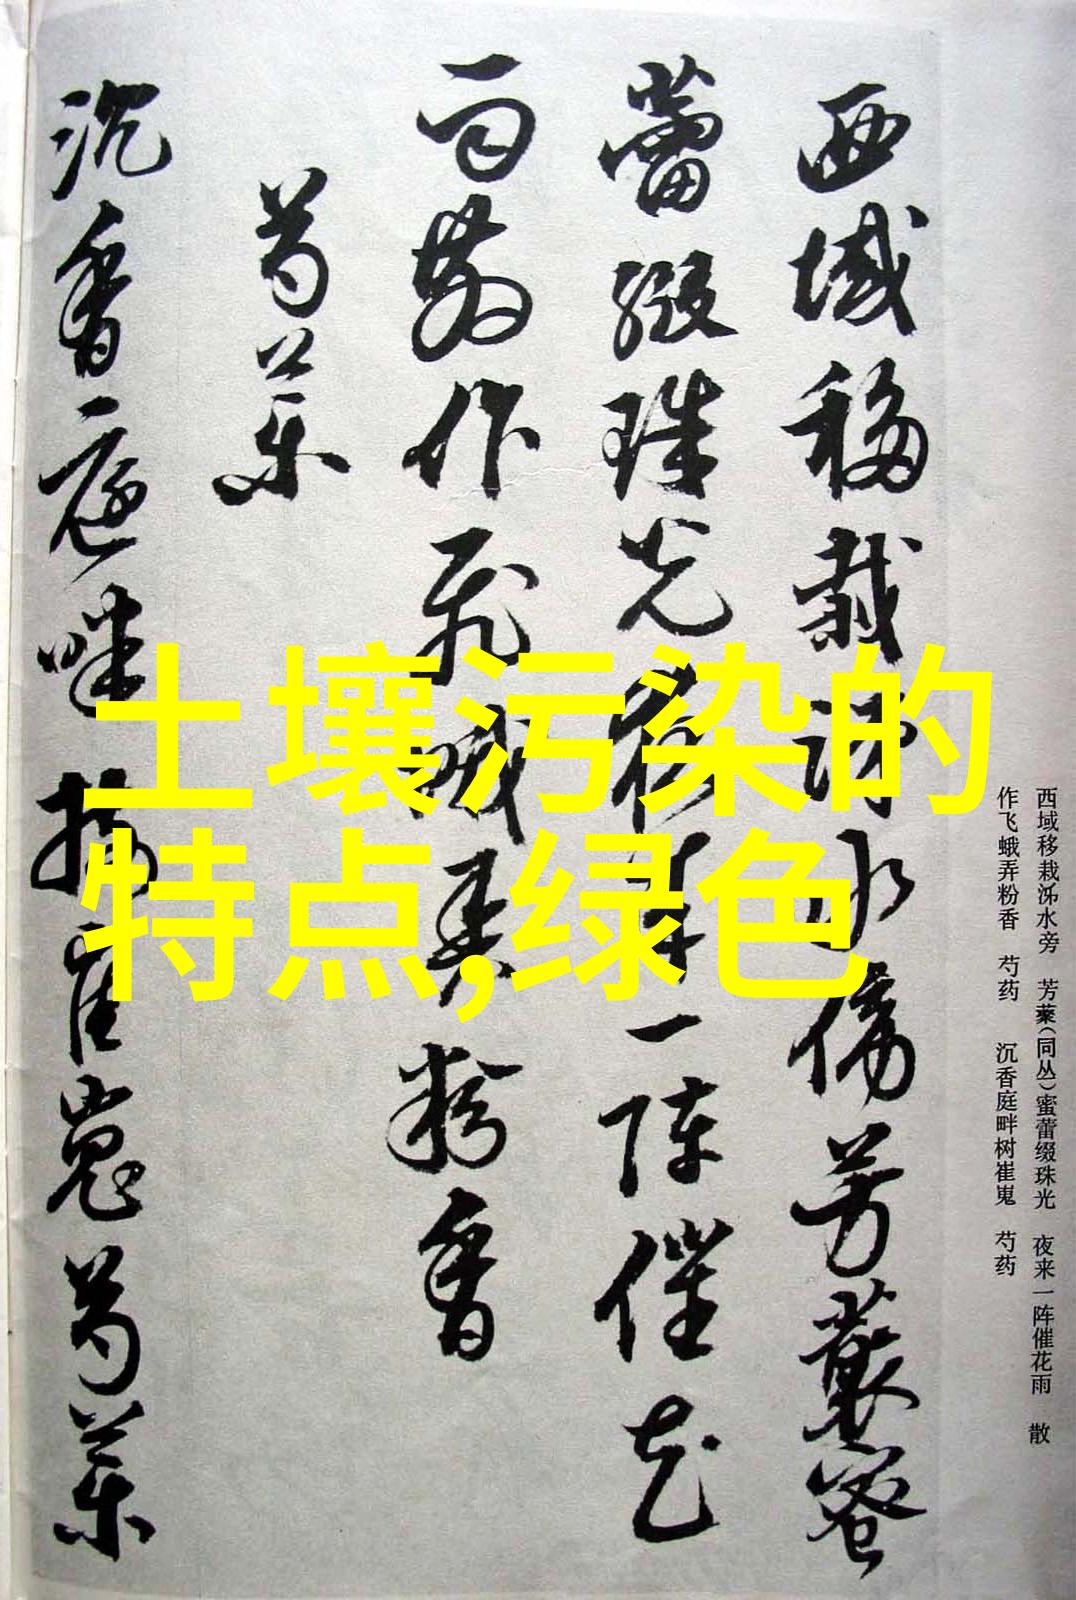 西域移栽泲水傍芳藂蜜
蕾缀珠光夜来一阵催花
雨散作飞蛾弄粉香
芍药
沉香庭畔树崔嵬芍药
土壤污染的
特点,绿色
西域移栽泲水旁 芳藂(同丛)蜜蕾缀珠光 夜来一阵催花雨 散
作飞蛾弄粉香 芍药 沉香庭畔树崔嵬 芍药